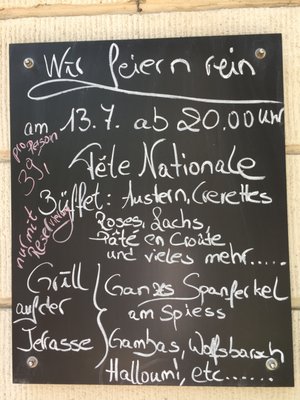 Wir feiern rein
am 13.7. ab 20.00 Uhr
Fête Nationale
pro Person
39,
nur mit
Reservierung
Büffet: Austern, Crevettes
Roses, Lachs,
Pâté en Croûte
und vieles mehr.....
Grill
auf der
Terasse
Ganzes Spanferkel
am Spiess
Gambas, Wolfsbarsch
Halloumi, etc.......